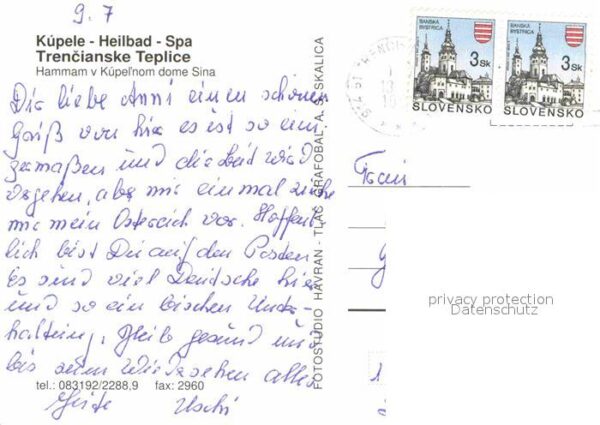 9.7
Kúpele - Heilbad - Spa
Trenčianske Teplice
Hammam v Kúpeľnom dome Sina
Dir liebe Anni einen schönen
Gruß von hier es ist so eini
germaßen und die Zeit wird
vergehen, aber mir einmal ziehe
mir mein Österreich vor. Hoffent
lich bist Du auf den Posten
Es sind viel Deutsche hier
und so ein bischen Unter-
haltung, Bleib gesund und
bis zum Wiedersehen alles
tel.: 083192/2288.9 fax: 2960
Gute Uschi
FOTOSTUDIO HAVRAN - TLAČ GRAFOBAL, A. S. SKALICA
BANSKÁ BYSTRICA
3 Sk
SLOVENSKO
BANSKÁ BYSTRICA
3 Sk
SLOVENSKO
Frau
privacy protection
Datenschutz